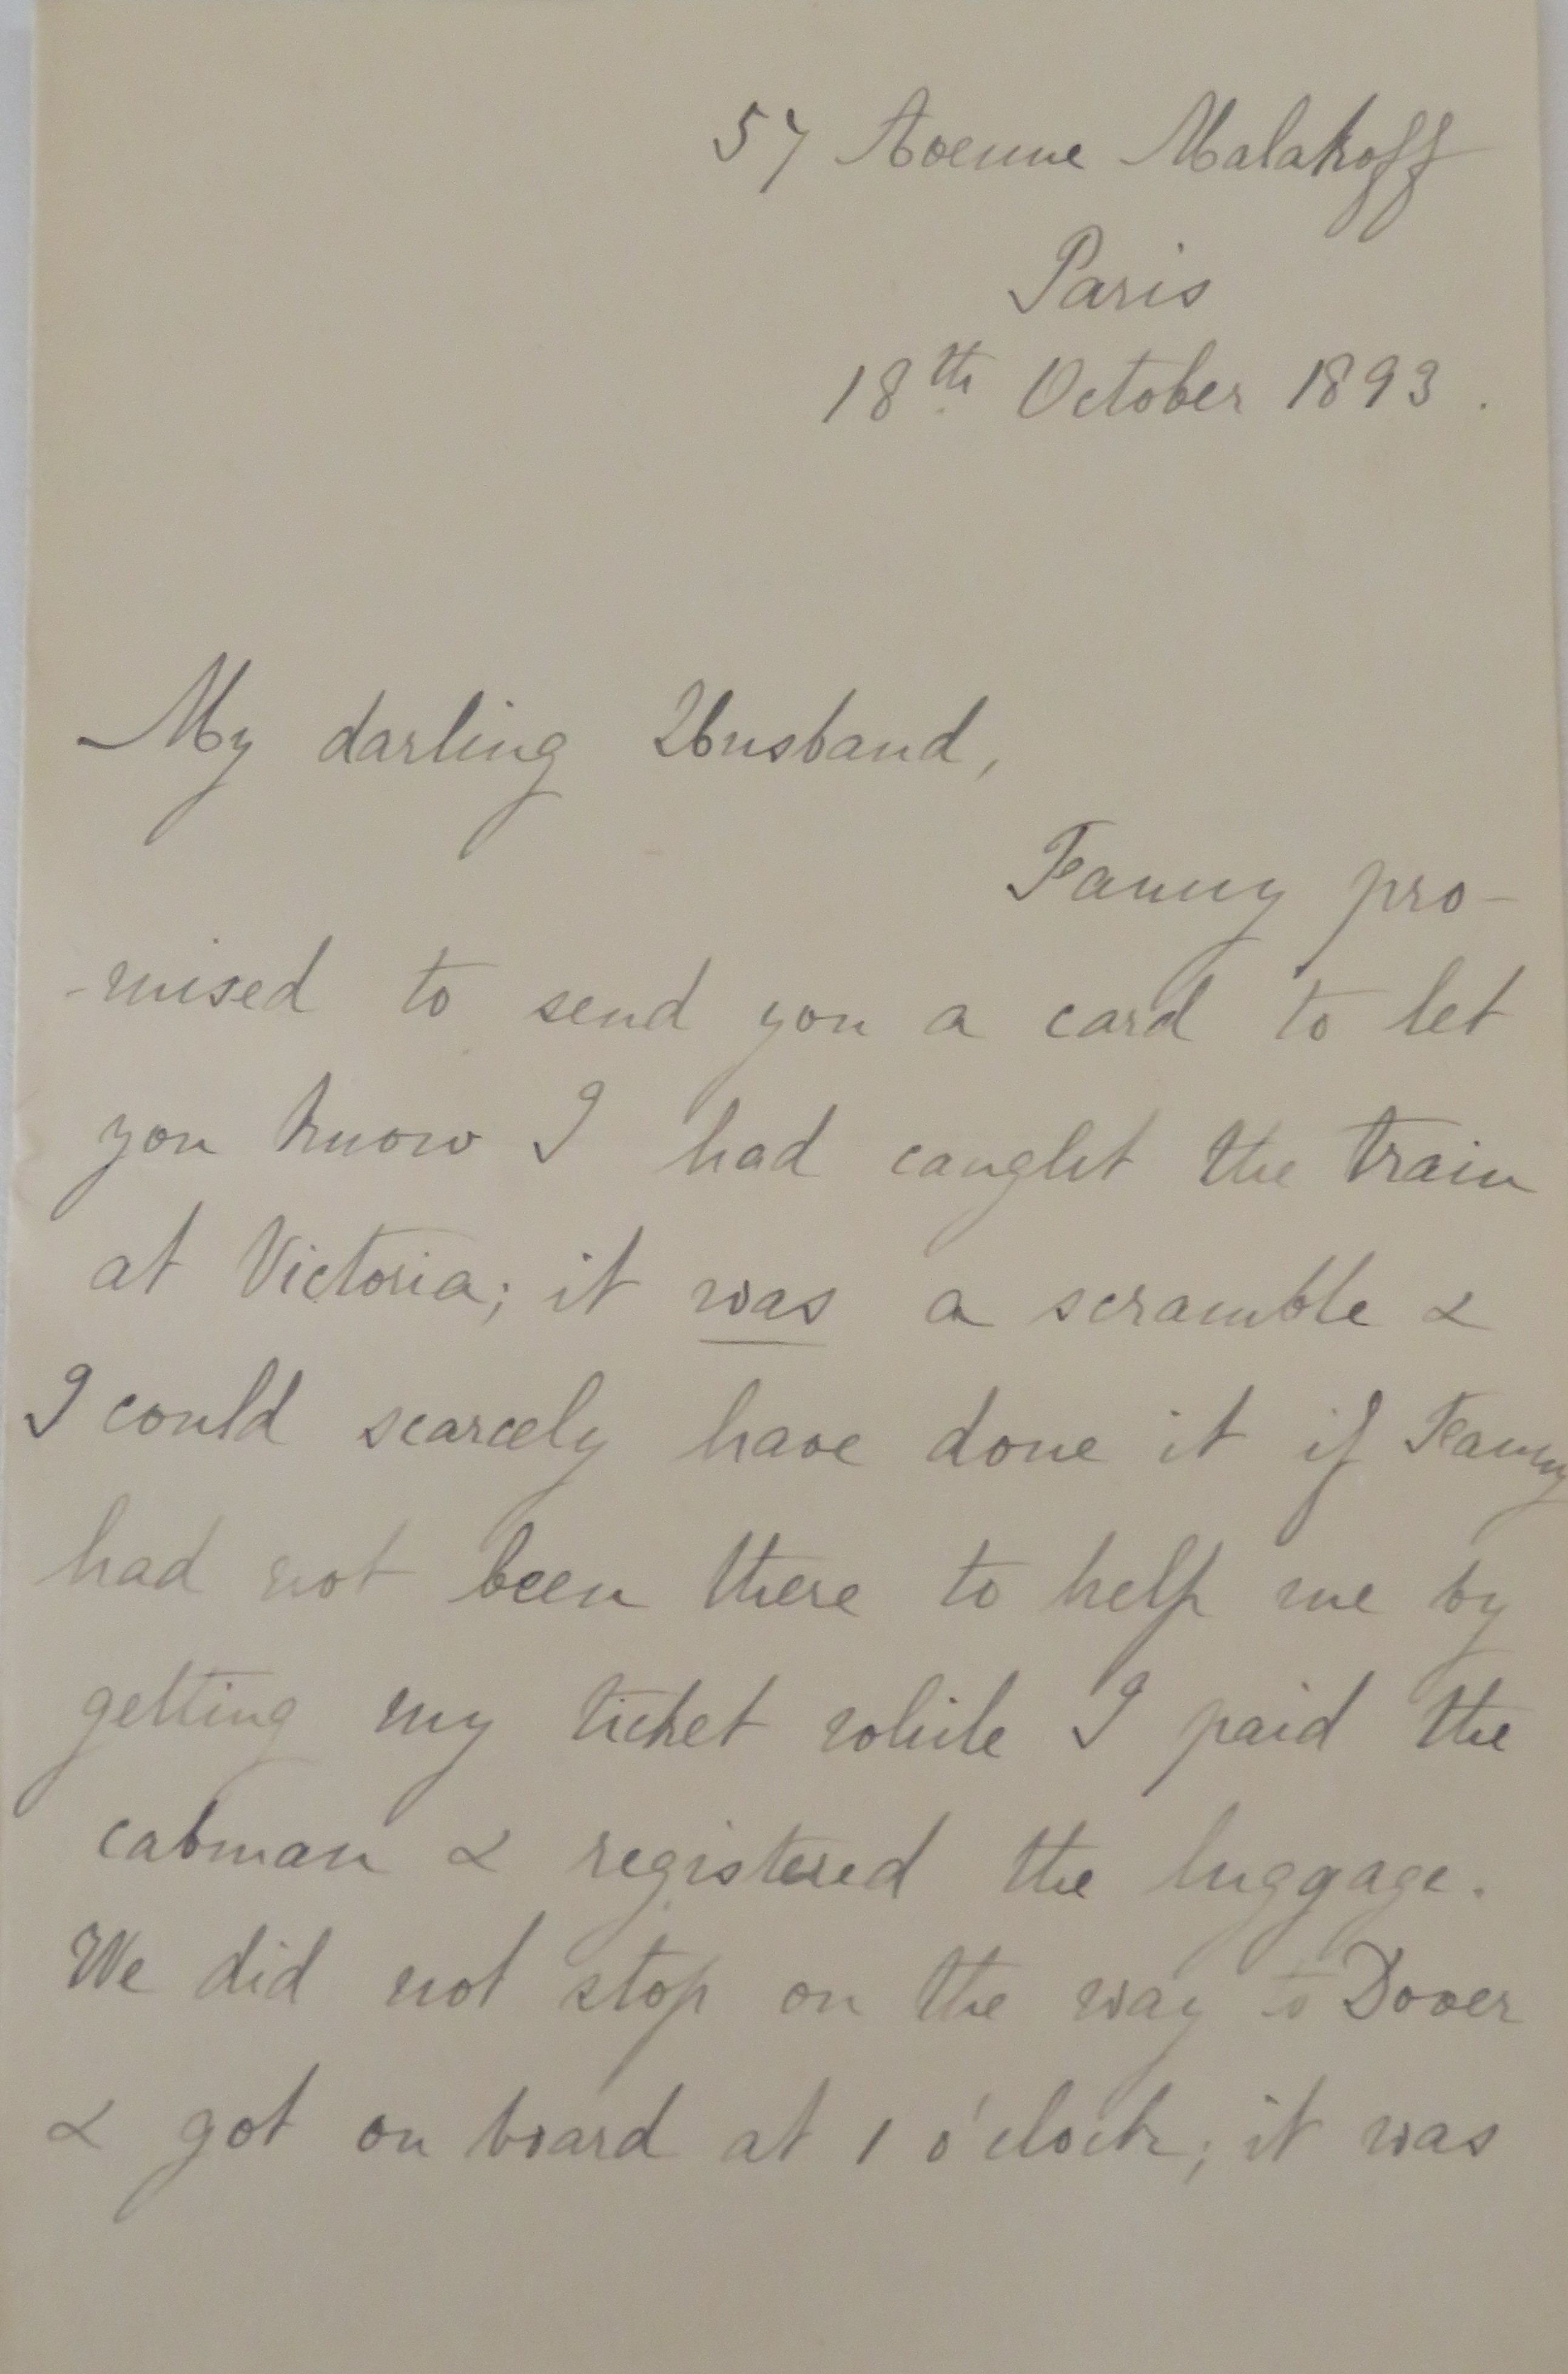 57 Avenue Malakoff
Paris
18th October 1893.
My darling Husband,
Fanny pro-
-mised to send you a card to let
you know I had caught the train
at Victoria; it was a scramble &
I could scarcely have done it if Fanny
had not been there to help me by
getting my ticket while I paid the
cabman & registered the luggage.
We did not stop on the way to Dover
& got on board at 1 o'clock; it was